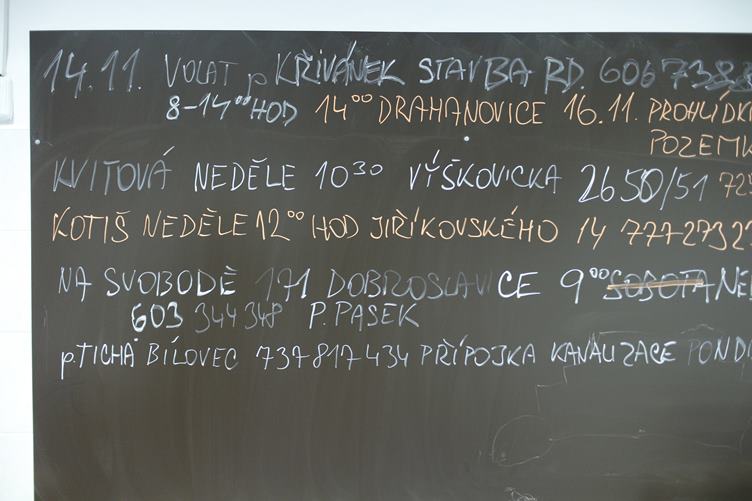 14.11. VOLAT p KŘIVÁNEK STAVBA RD. 606 738
8-14⁰⁰ HOD 14⁰⁰ DRAHANOVICE 16.11. PROHLÍDK
POZEMK
KVITOVÁ NEDĚLE 10³⁰ VÝŠKOVICKA 2650/51 725
KOTIŠ NEDĚLE 12⁰⁰ HOD JIŘÍKOVSKÉHO 14 77727327
NA SVOBODĚ 191 DOBROSLAVICE 9⁰⁰ SOBOTA NE
603 344 348 P. PASEK
p. TICHÁ BÍLOVEC 737 817 434 PŘÍPOJKA KANALIZACE POND